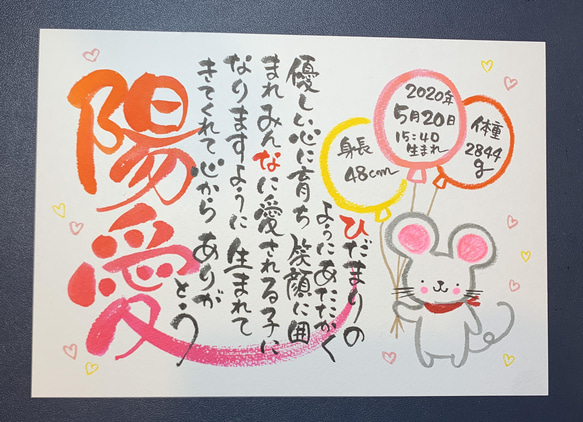 陽愛
ひだまりの
ようにあたたかく
優しい心に育ち 笑顔に囲
まれ みんなに愛される子に
なりますように 生まれて
きてくれて心から ありが
とう
身長
48cm
2020年
5月20日
15:40
生まれ
体重
2844
g